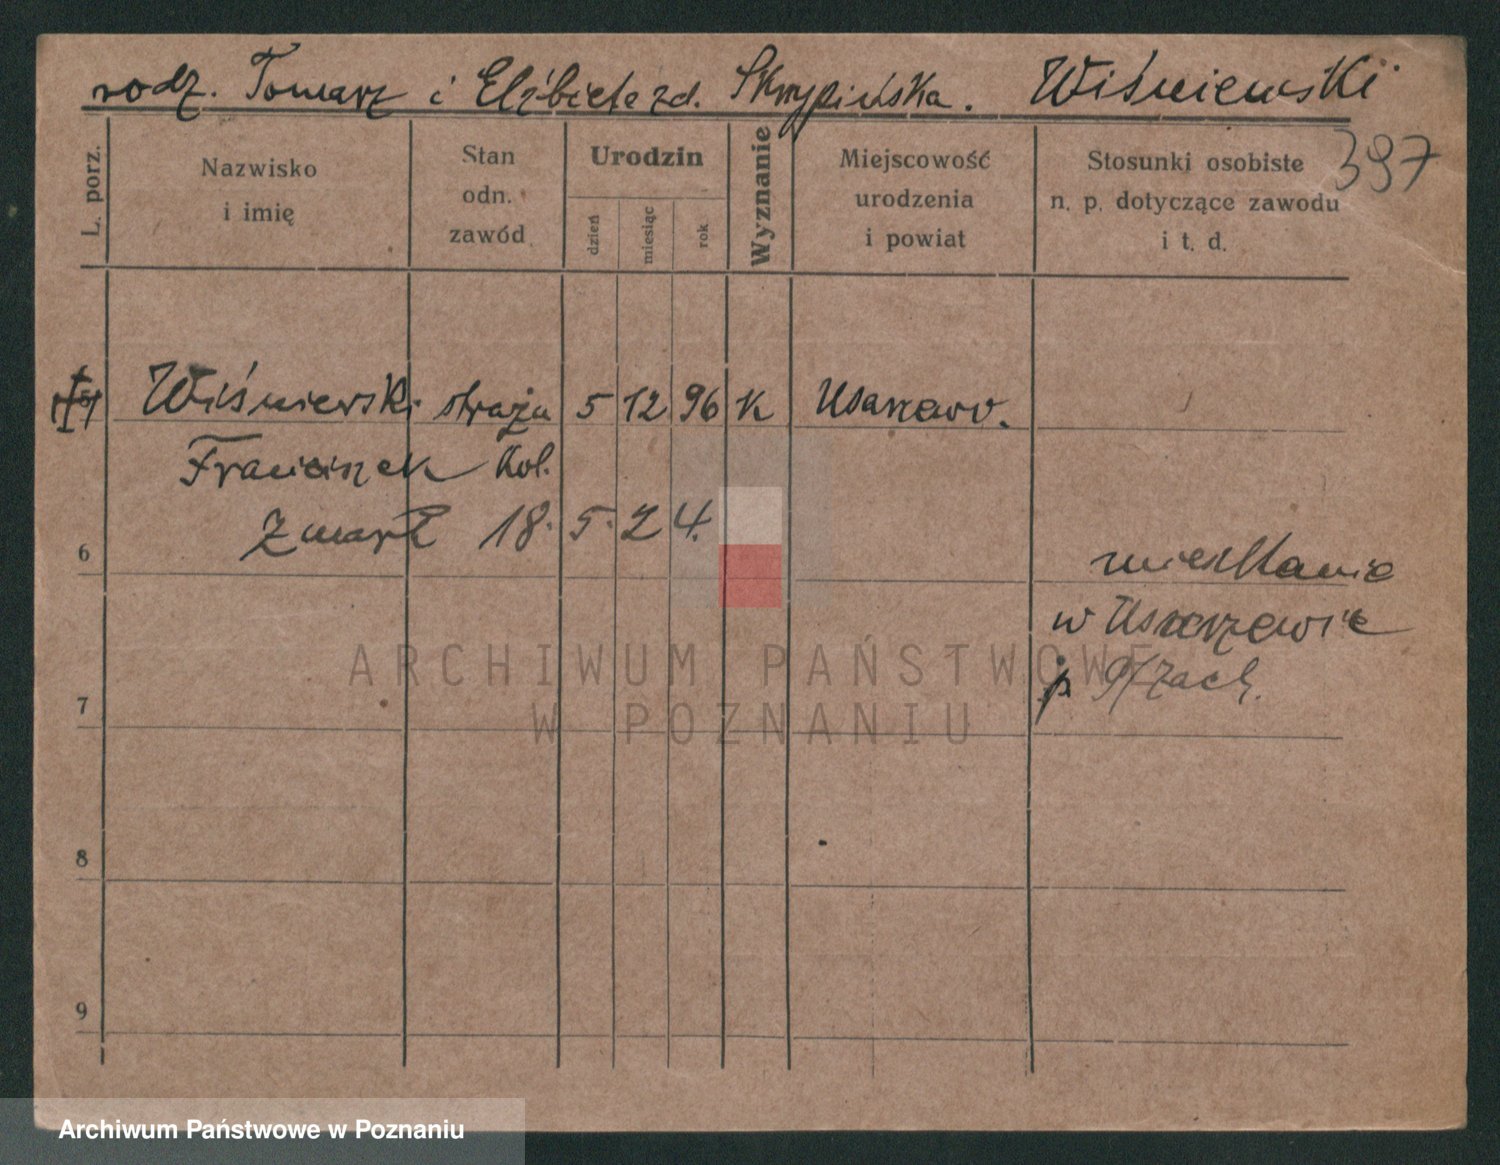 rodz. Tomasz i Elżbieta zd. Skrzypińska. Wiśniewski
397
L. porz.
Nazwisko i imię
Stan odn. zawód
Urodzin
dzień miesiąc rok
Wyznanie
Miejscowość urodzenia i powiat
Stosunki osobiste n. p. dotyczące zawodu i t. d.
Wiśniewski straża 5 12 96 K Usarzewo.
Franciszek kol.
Zmarł 18. 5. 24.
6
w
p.
7
8
9
ARCHIWUM PAŃSTWOWE
W POZNANIU
Archiwum Państwowe w Poznaniu